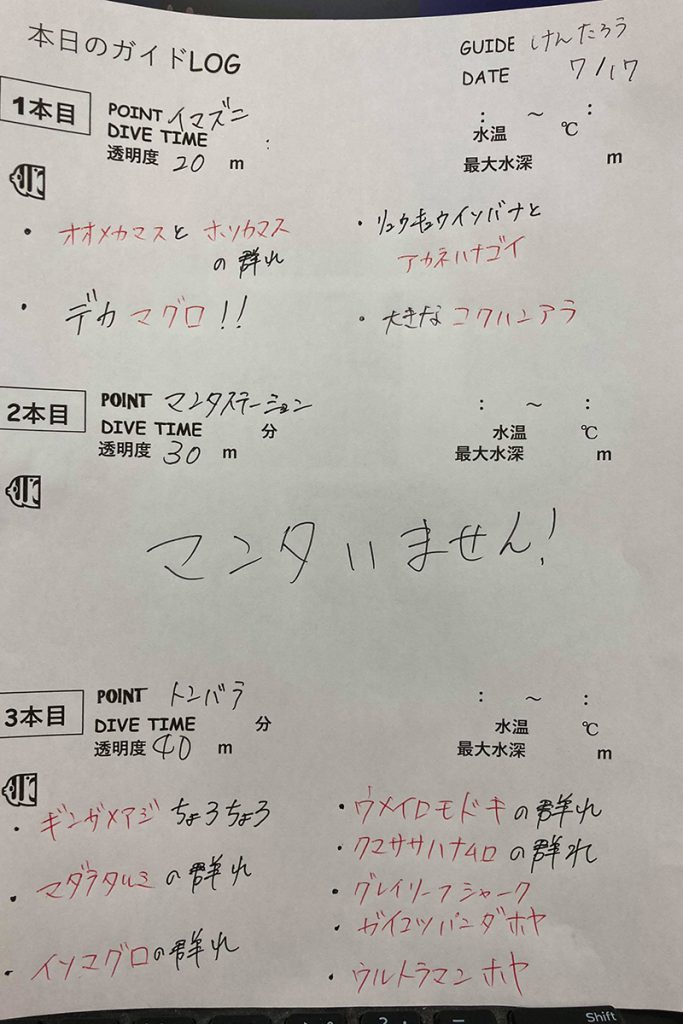 本日のガイドLOG
GUIDE けんたろう
DATE 7/17
1本目
POINT イマズニ
DIVE TIME :
透明度 20 m
: ～ :
水温 ℃
最大水深 m
・オオメカマスと ホソカマス
の群れ
・デカマグロ!!
・リュウキュウイソバナと
アカネハナゴイ
・大きなコクハンアラ
2本目
POINT マンタステーション
DIVE TIME 分
透明度 30 m
: ～ :
水温 ℃
最大水深 m
マンタいません!
3本目
POINT トンバラ
DIVE TIME 分
透明度 40 m
: ～ :
水温 ℃
最大水深 m
・ギンガメアジ ちょろちょろ
・マダラタルミの群れ
・イソマグロの群れ
・ウメイロモドキの群れ
・クマササハナムロの群れ
・グレイリーフシャーク
・ガイコツパンダホヤ
・ウルトラマンホヤ
Shift